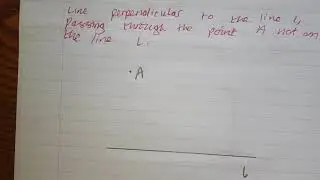 Line perpendicular to the line l,
passing through the point A not on
the line l.
A
l